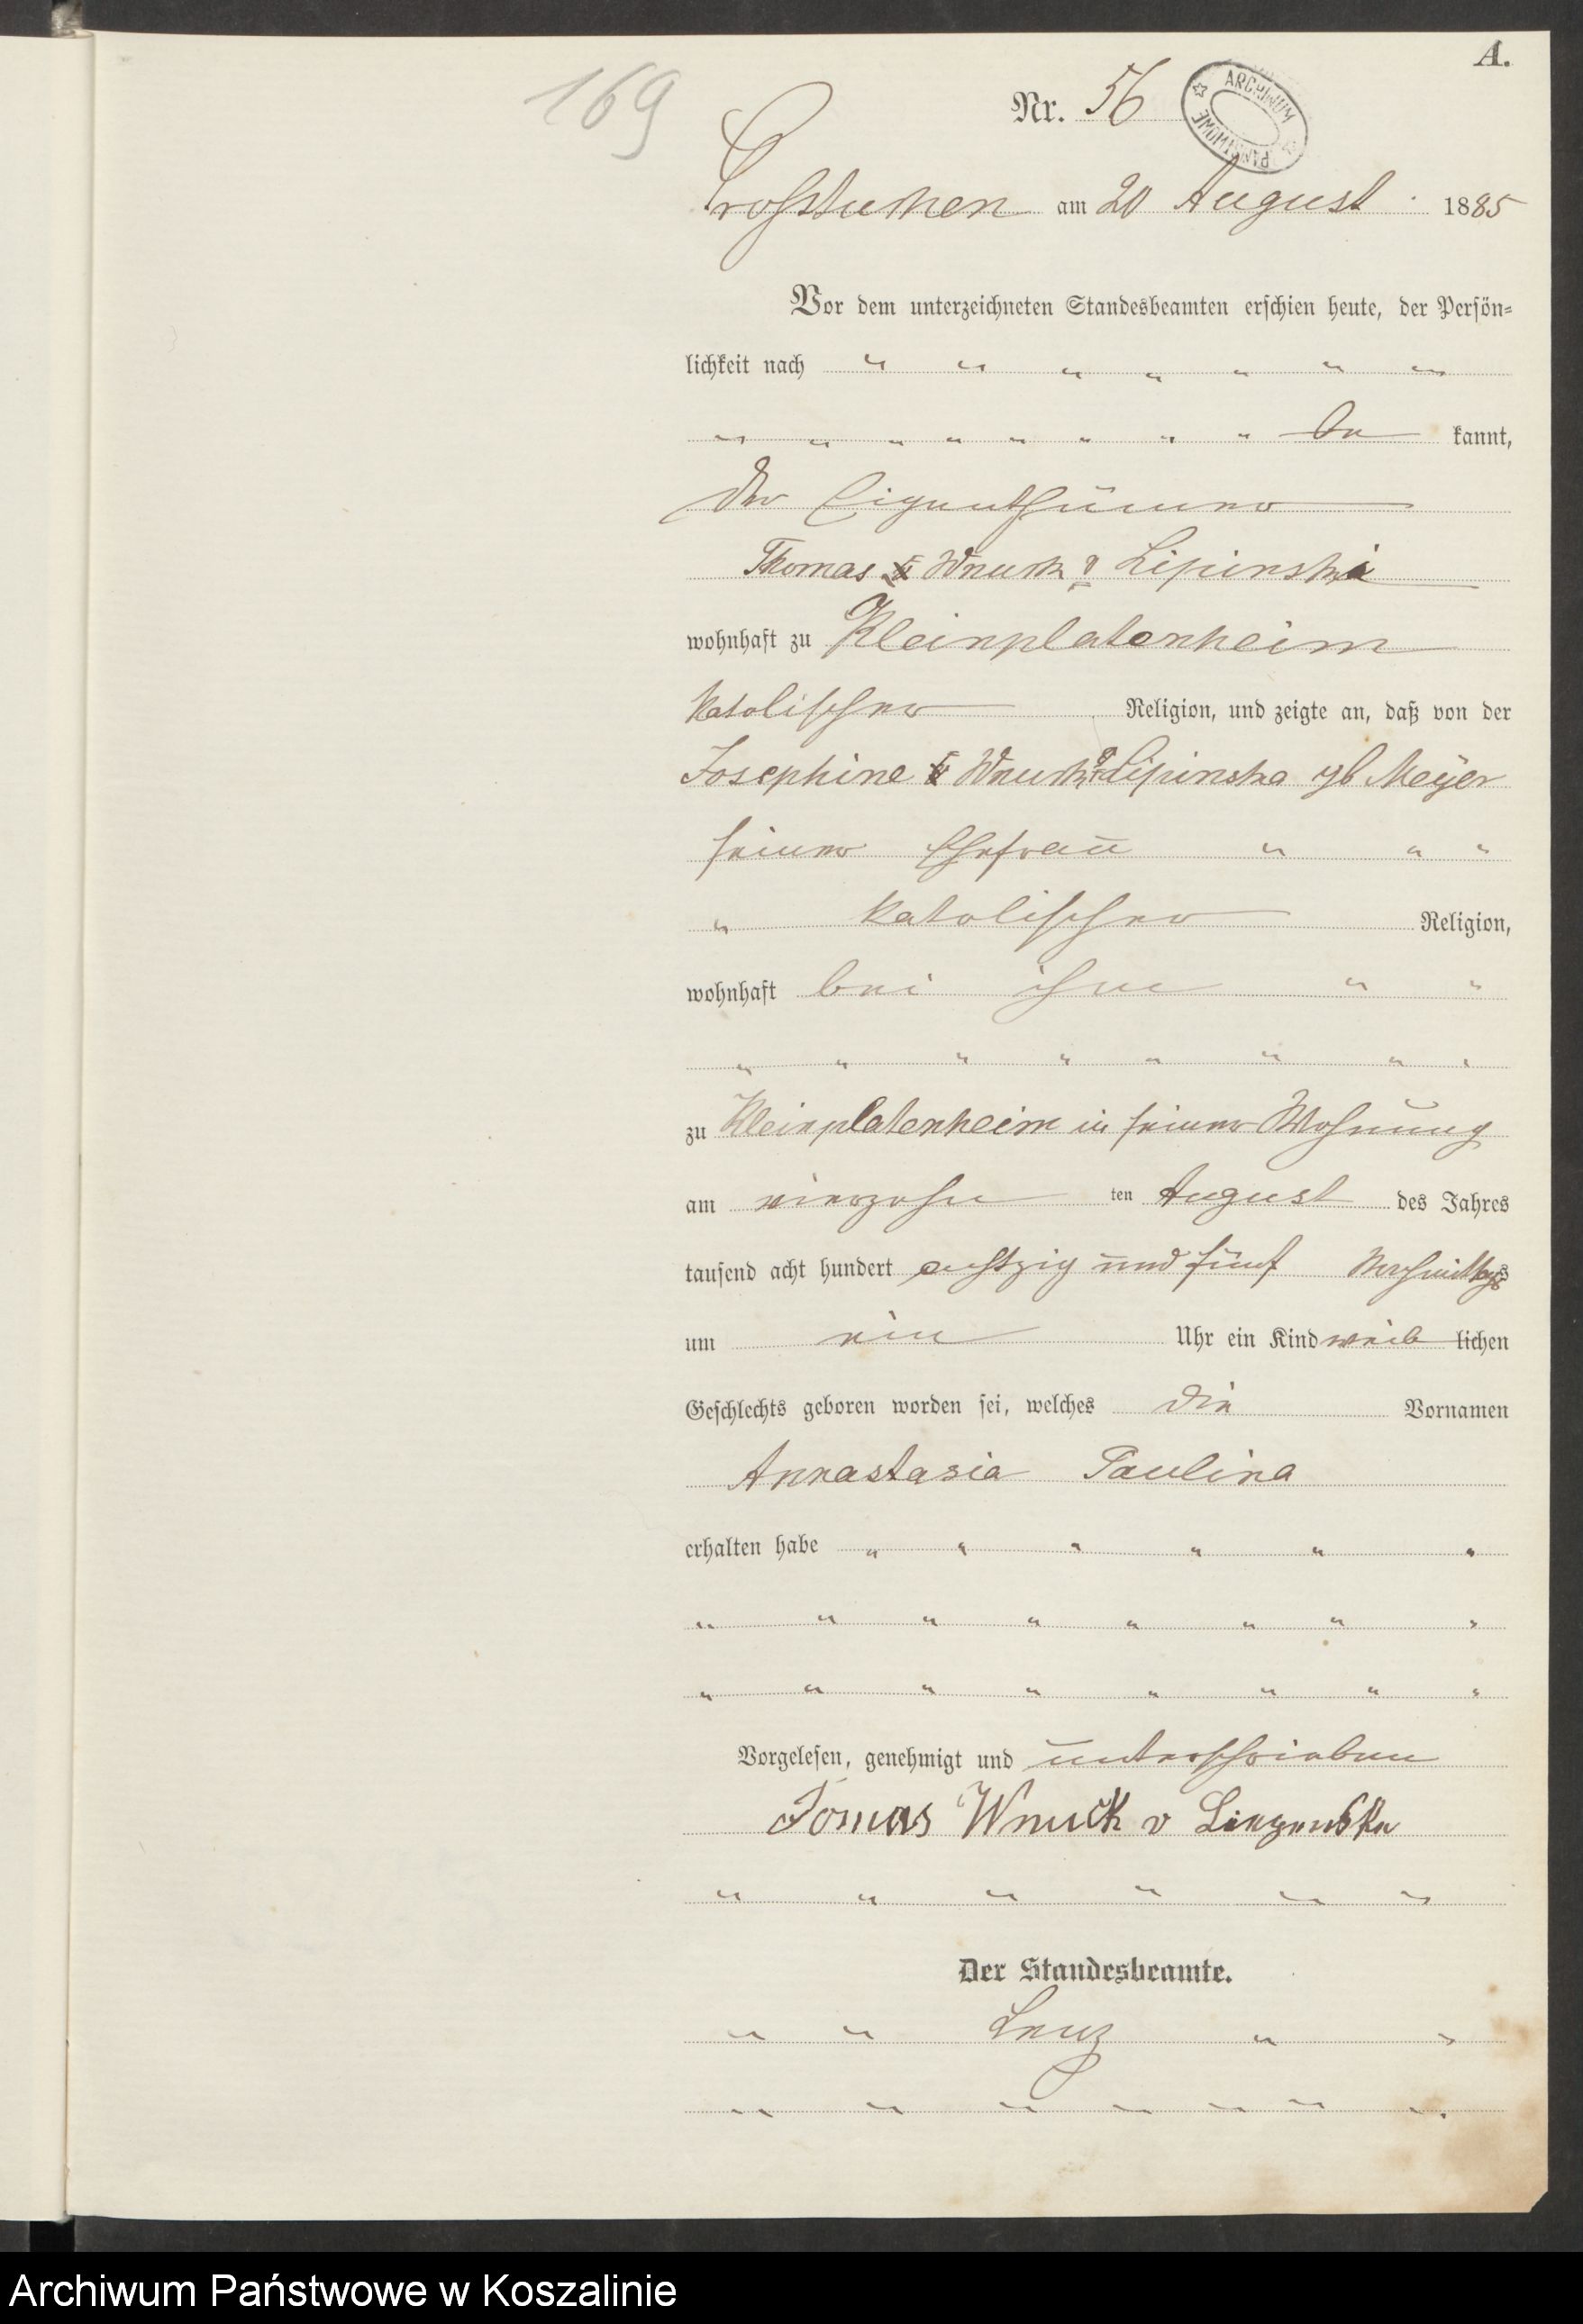 A.
169
Nr. 56
ARCHIWUM PAŃSTWOWE
Grosstuchen am 20 August 1885
Vor dem unterzeichneten Standesbeamten erschien heute, der Persön=
lichkeit nach " " " " " " "
" " " " " " " " be kannt,
der Eigenthümer
Thomas Wnuck v Lipinski
wohnhaft zu Kleinplatenheim
katolischer Religion, und zeigte an, daß von der
Josephine Wnuck v Lipinska gb Meyer
seiner Ehefrau " " "
" katolischer Religion,
wohnhaft bei ihm " "
" " " " " " " "
zu Kleinplatenheim in seiner Wohnung
am vierzehn ten August des Jahres
tausend acht hundert achtzig und fünf Nachmittags
um ein Uhr ein Kind weib lichen
Geschlechts geboren worden sei, welches die Vornamen
Annastasia Paulina
erhalten habe " " " " " "
" " " " " " " "
" " " " " " " "
Vorgelesen, genehmigt und unterschrieben
Tomas Wnuck v
" " " " " "
Der Standesbeamte.
" " Lenz " "
" " " " " " "
Archiwum Państwowe w Koszalinie